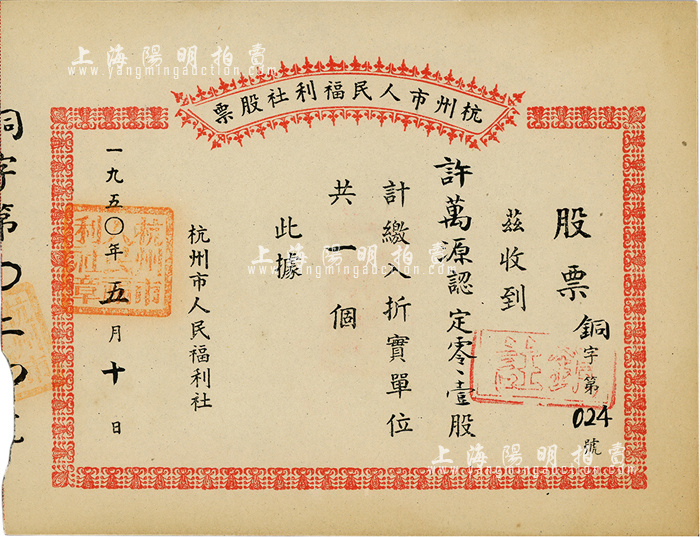 上海陽明拍賣
www.yangmingauction.com
杭州市人民福利社股票
股票
銅字第024號
註銷
茲收到
許萬源認定零、壹股
計繳入折實單位
共一個
此據
杭州市人民福利社
一九五〇年五月十日
杭州市人民福利社章
上海陽明拍賣
www.yangmingauction.com
上海陽明拍賣
www.yangmingauction.com
銅字第〇二四號